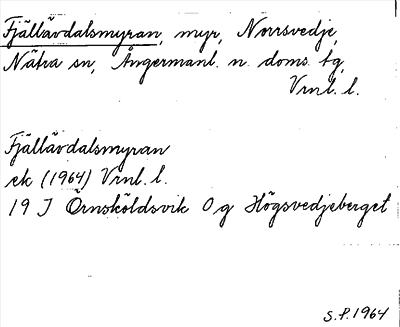 Fjällävdalsmyran, myr, Norrsvedje,
Nätra sn, Ångermanl. n. doms. tg,
Vrnl. l.
Fjällävdalsmyran
ek (1964) Vrnl. l.
19 J Örnsköldsvik O g Högsvedjeberget
S.P. 1964